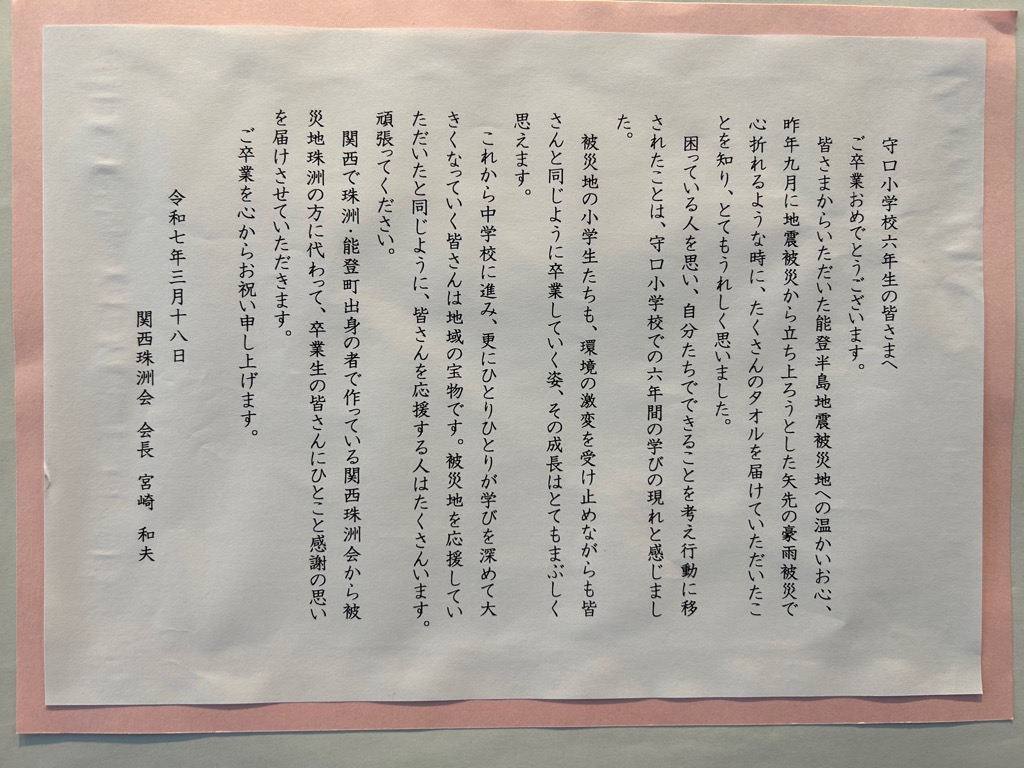 守口小学校六年生の皆さまへ
ご卒業おめでとうございます。
皆さまからいただいた能登半島地震被災地への温かいお心、
昨年九月に地震被災から立ち上ろうとした矢先の豪雨被災で
心折れるような時に、たくさんのタオルを届けていただいたこ
とを知り、とてもうれしく思いました。
困っている人を思い、自分たちでできることを考え行動に移
されたことは、守口小学校での六年間の学びの現れと感じまし
た。
被災地の小学生たちも、環境の激変を受け止めながらも皆
さんと同じように卒業していく姿、その成長はとてもまぶしく
思えます。
これから中学校に進み、更にひとりひとりが学びを深めて大
きくなっていく皆さんは地域の宝物です。被災地を応援してい
ただいたと同じように、皆さんを応援する人はたくさんいます。
頑張ってください。
関西で珠洲・能登町出身の者で作っている関西珠洲会から被
災地珠洲の方に代わって、卒業生の皆さんにひとこと感謝の思い
を届けさせていただきます。
ご卒業を心からお祝い申し上げます。
令和七年三月十八日
関西珠洲会 会長 宮崎 和夫